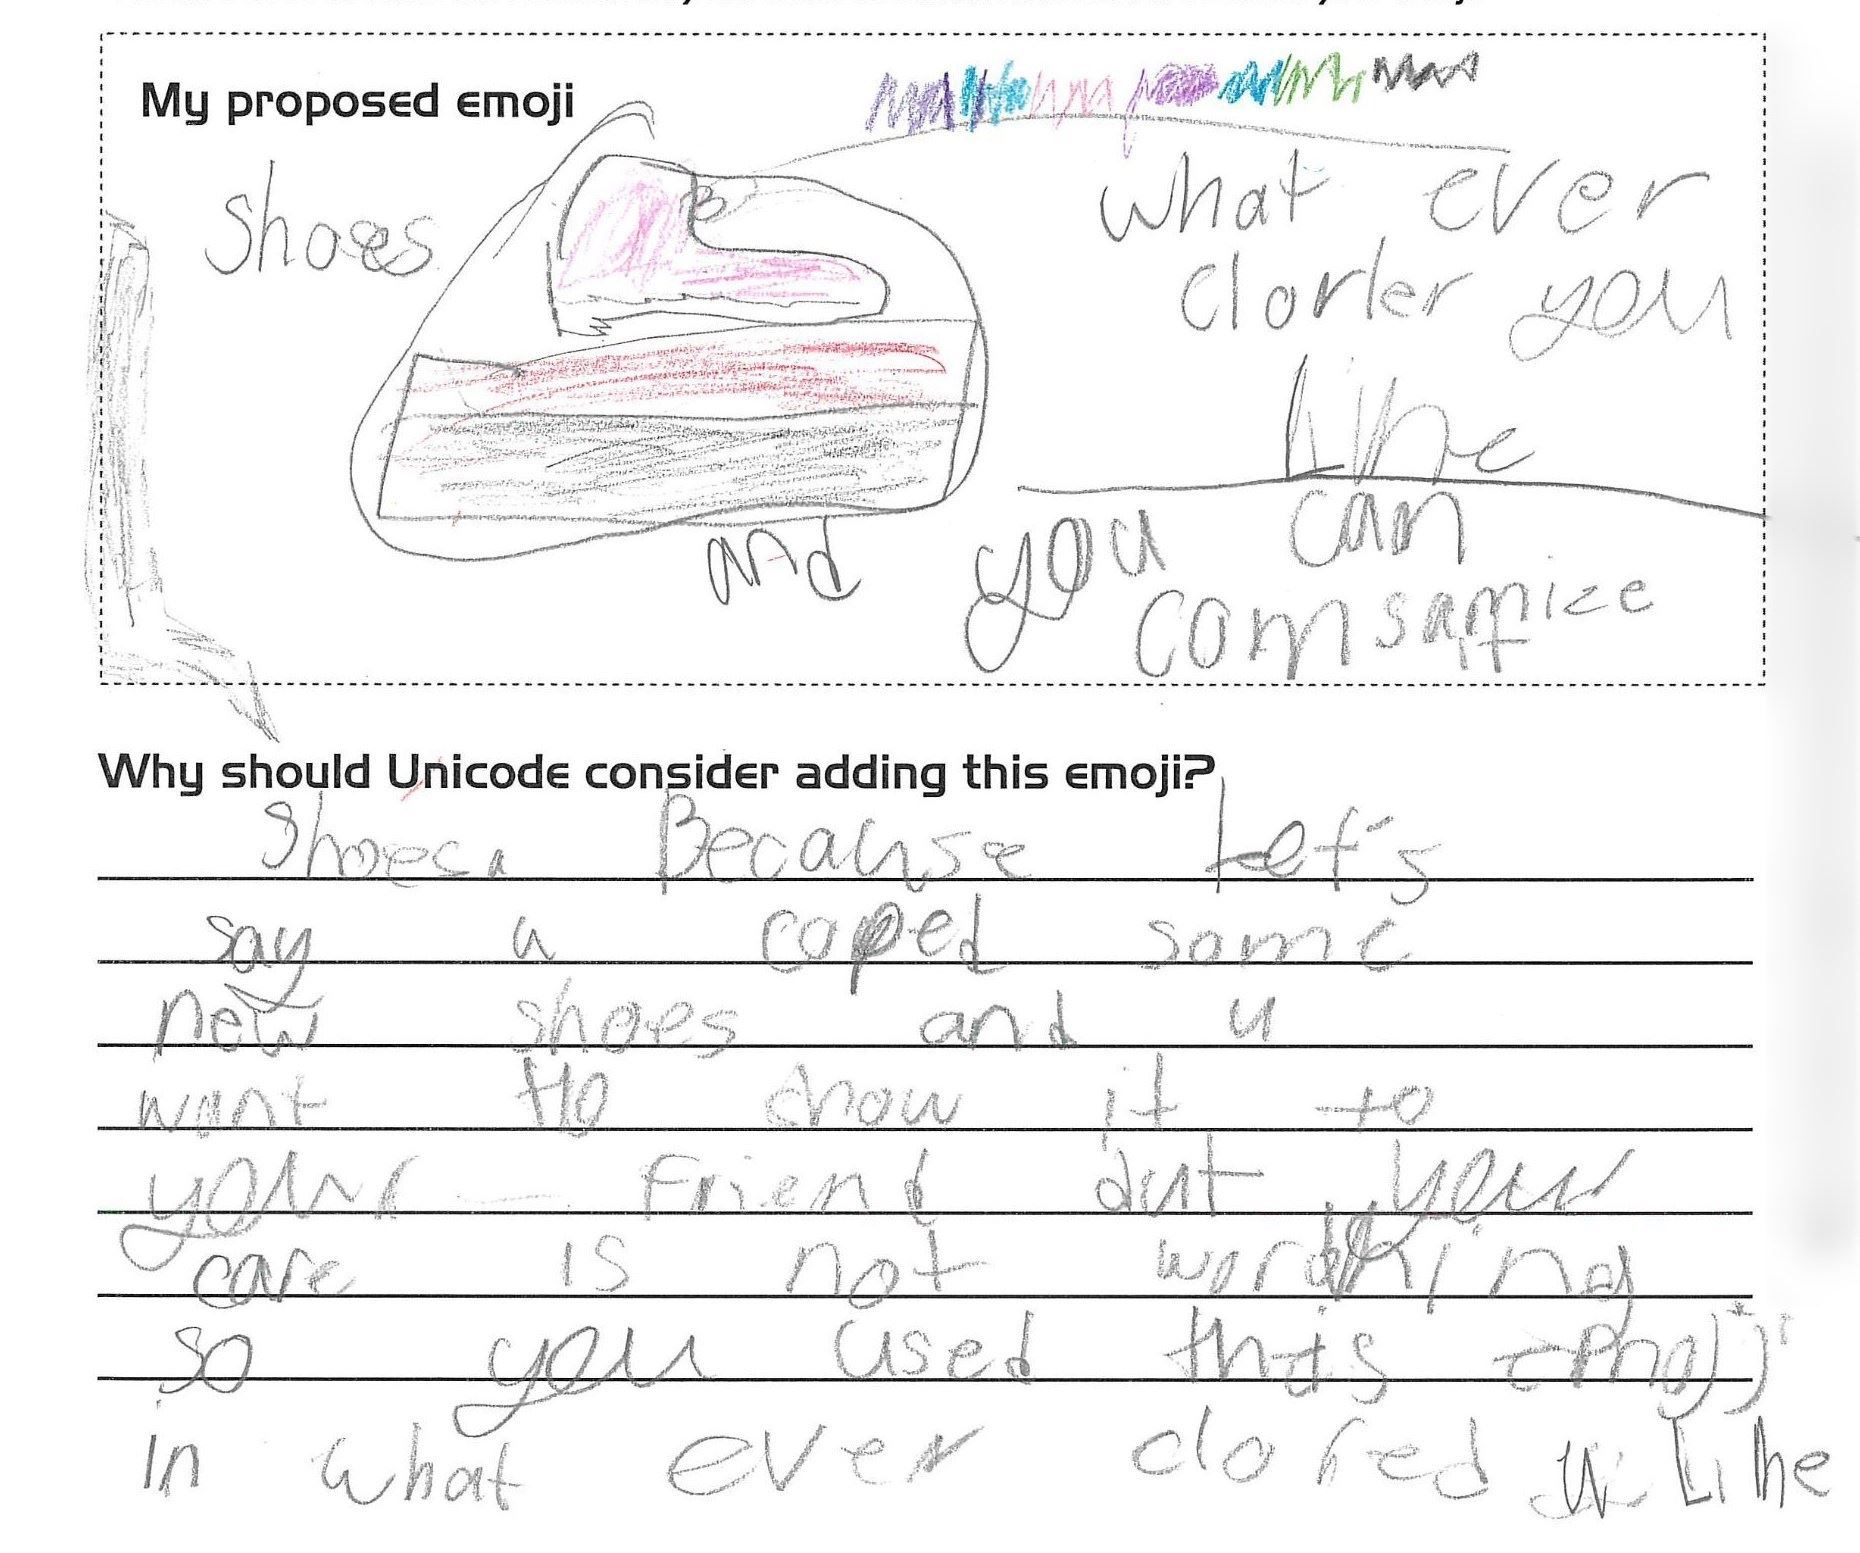 My proposed emoji
Shoes
what ever
clorler you
like
and you can
comsamize
Why should Unicode consider adding this emoji?
Shoes. Because Let's
say u coped some
new shoes and u
want to show it to
your Friend but your
care is not working
so you used this emoji
in what ever clored u Like